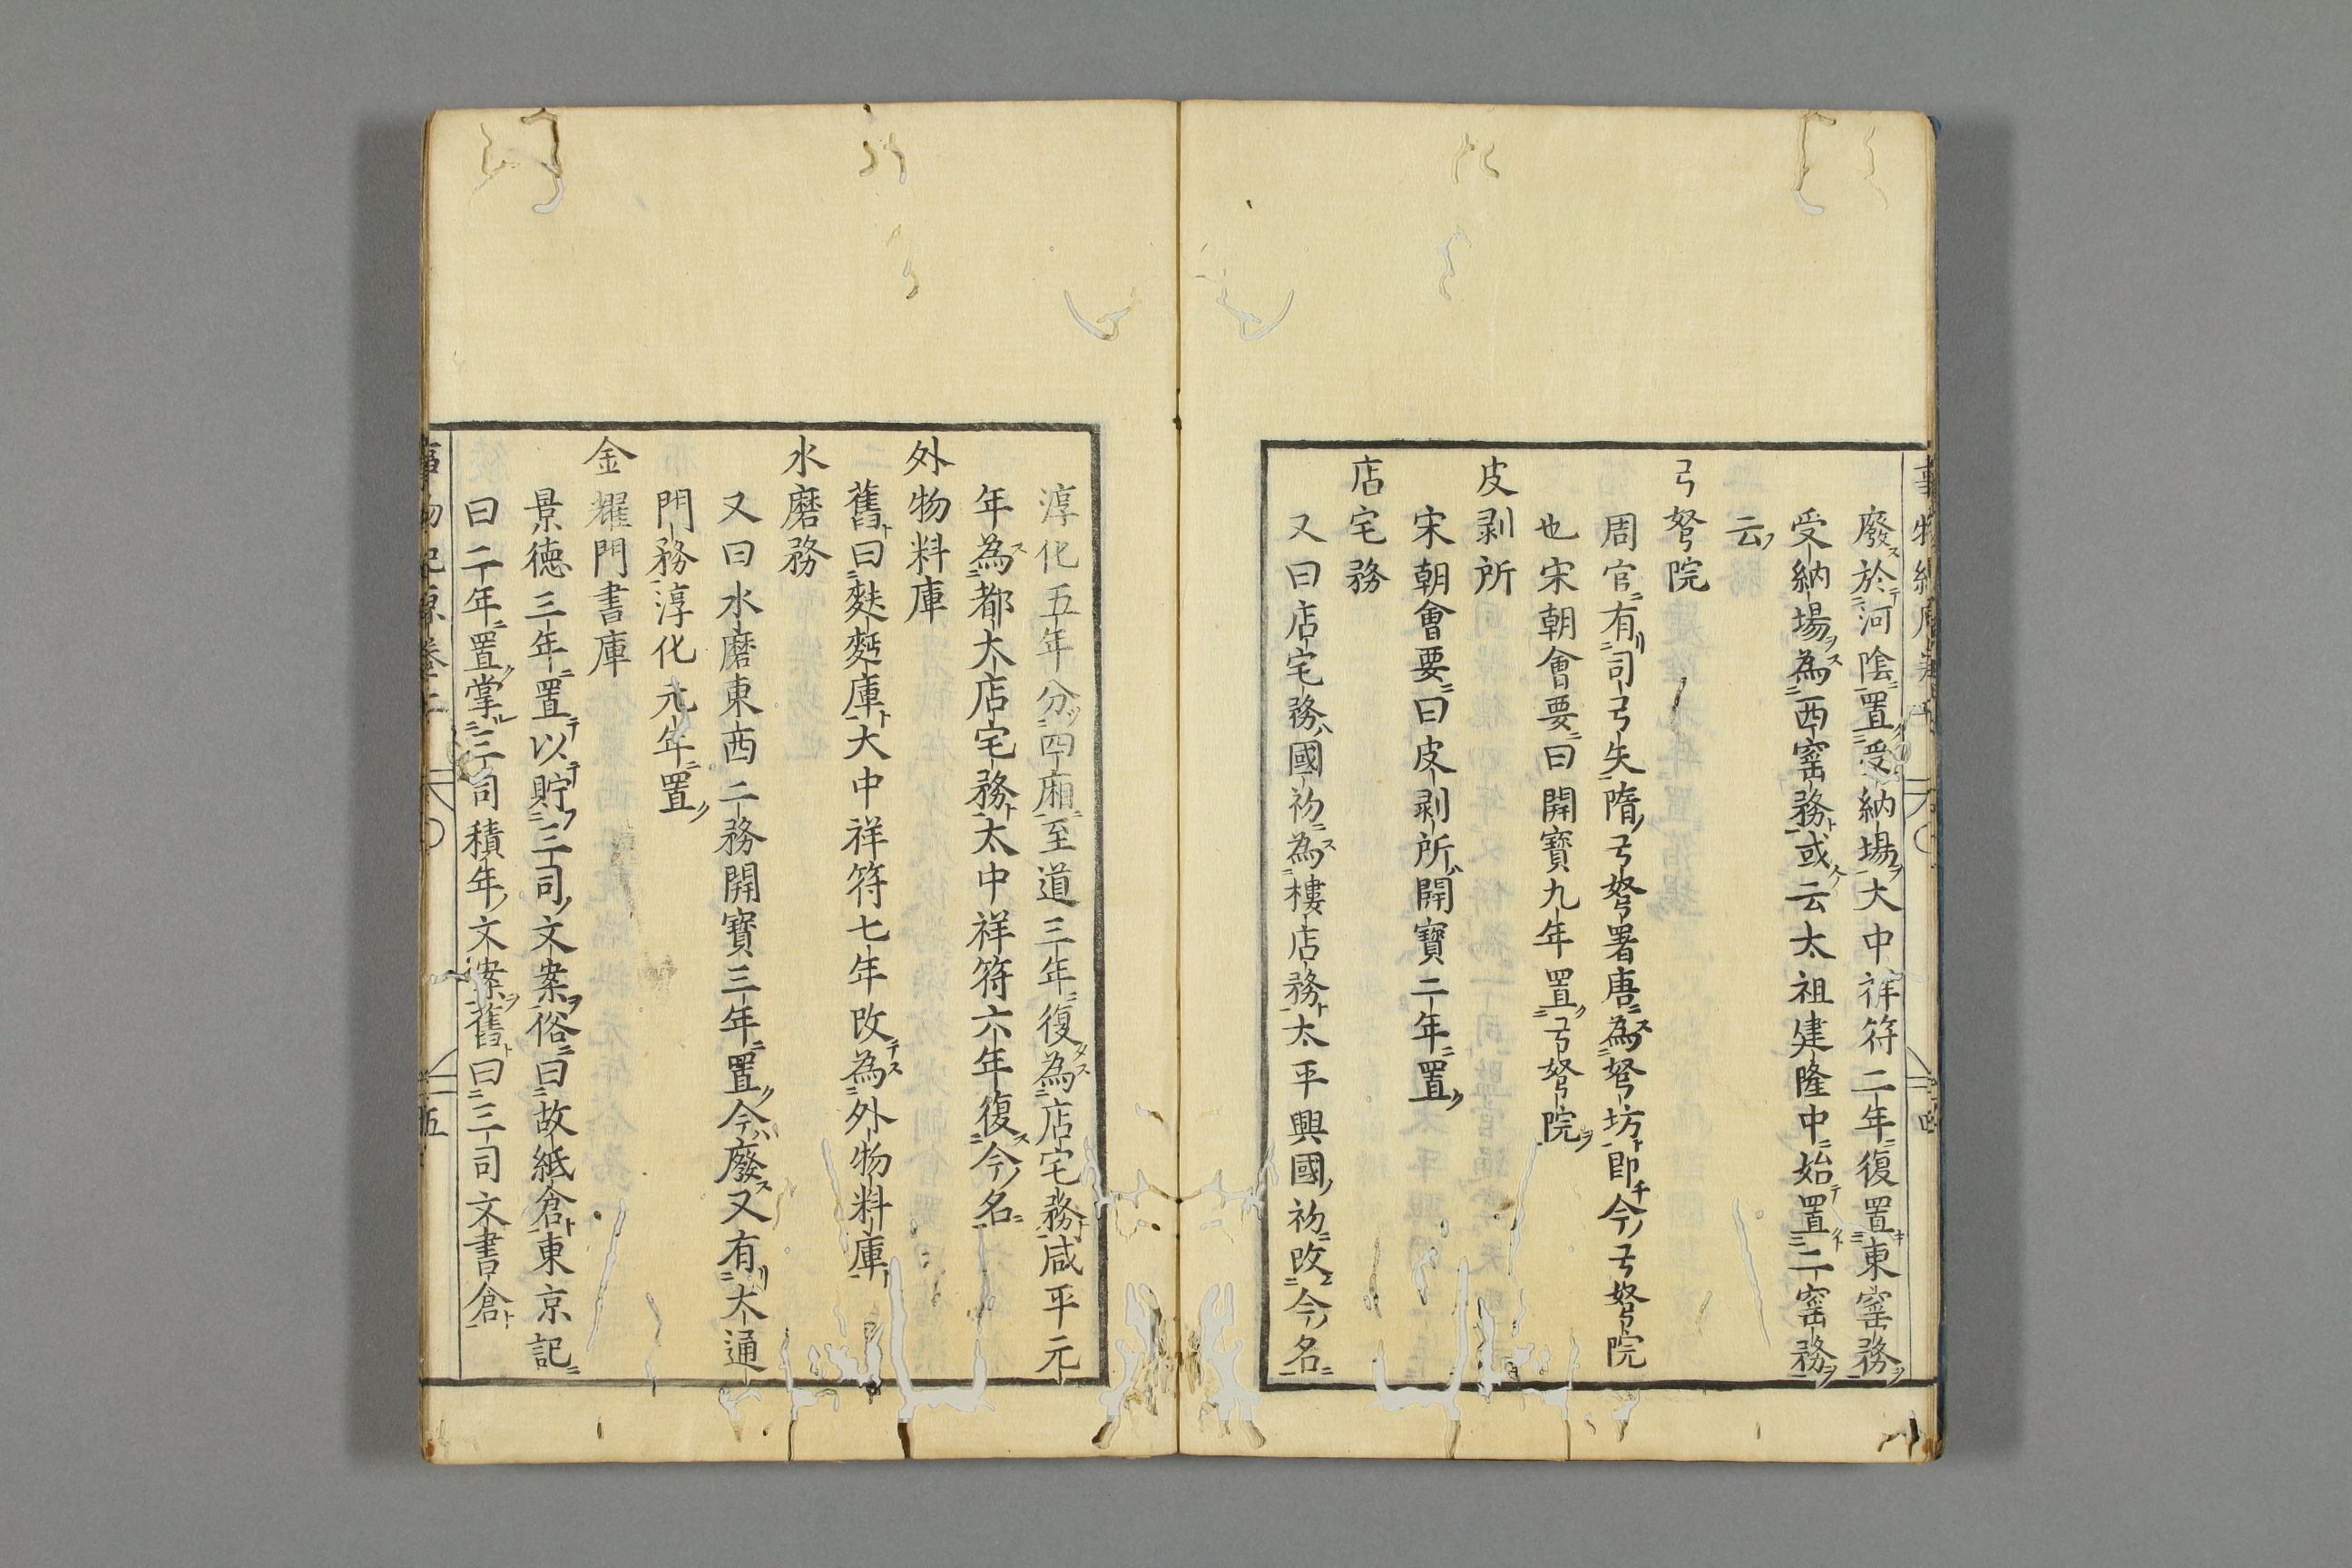 廢於河陰置受納場大中祥符二年復置東窰務
受納場為西窰務或云太祖建隆中始置二窰務
云
弓弩院
周官有司弓矢隋弓弩署唐為弩坊即今弓弩院
也宋朝會要曰開寶九年置弓弩院
皮剥所
宋朝會要曰皮剥所開寶二年置
店宅務
又曰店宅務國初為樓店務太平興國初改今名
淳化五年分四廂至道三年復為店宅務咸平元
年為都大店宅務太中祥符六年復今名
外物料庫
舊曰麩麪庫大中祥符七年改為外物料庫
水磨務
又曰水磨東西二務開寶三年置今廢又有大通
門務淳化元年置
金耀門書庫
景德三年置以貯三司文案俗曰故紙倉東京記
曰二年置掌三司積年文案舊曰三司文書倉